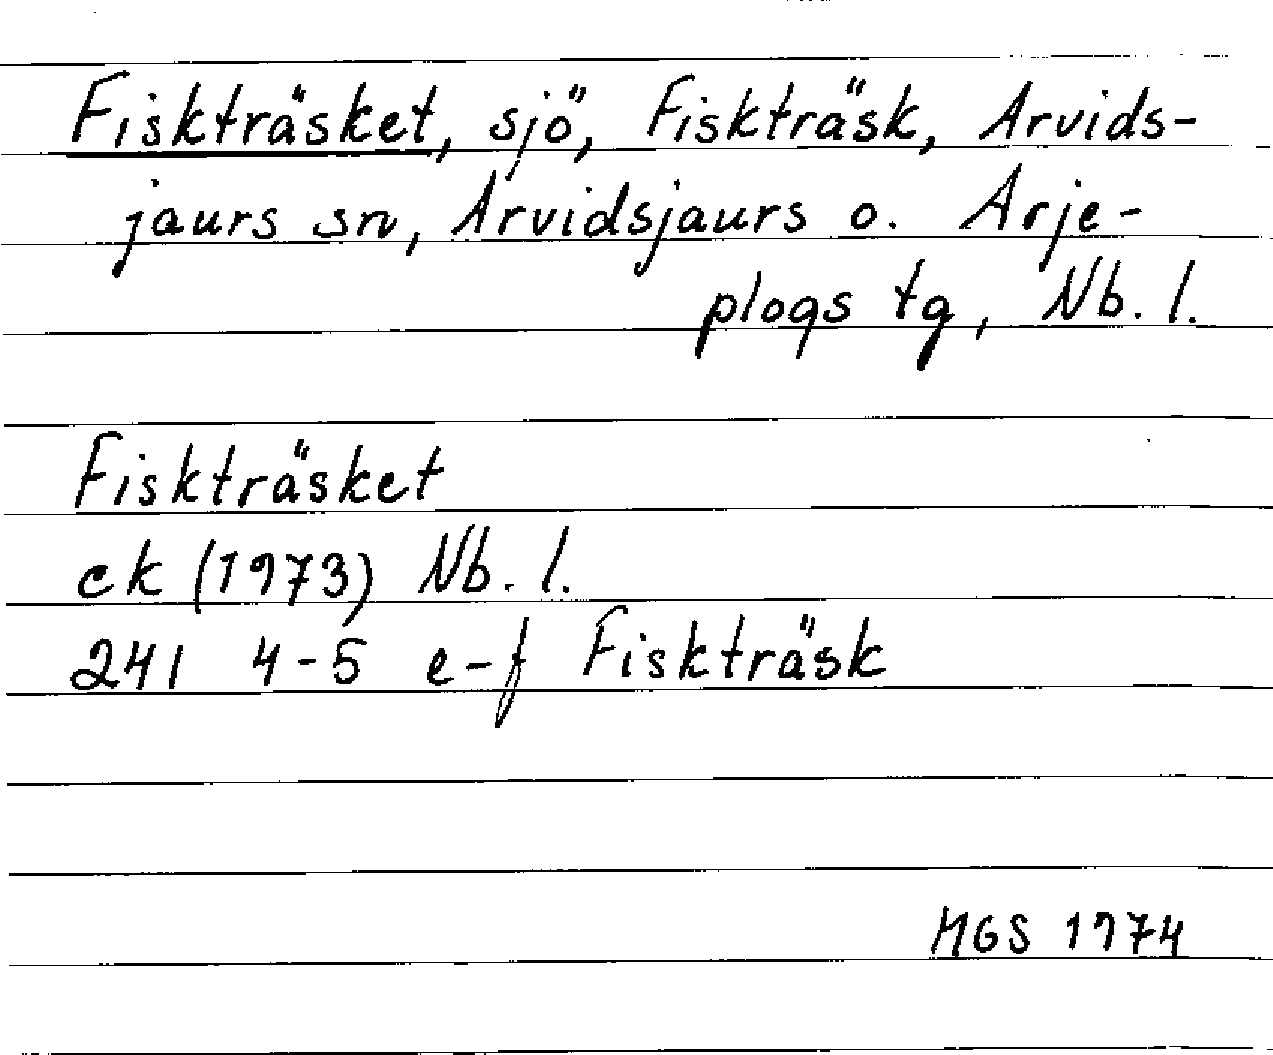 Fiskträsket, sjö, Fiskträsk, Arvids-
jaurs sn, Arvidsjaurs o. Arje-
plogs tg, Nb. l.
Fiskträsket
ek (1973) Nb. l.
241 4-5 e-f Fiskträsk
MGS 1974